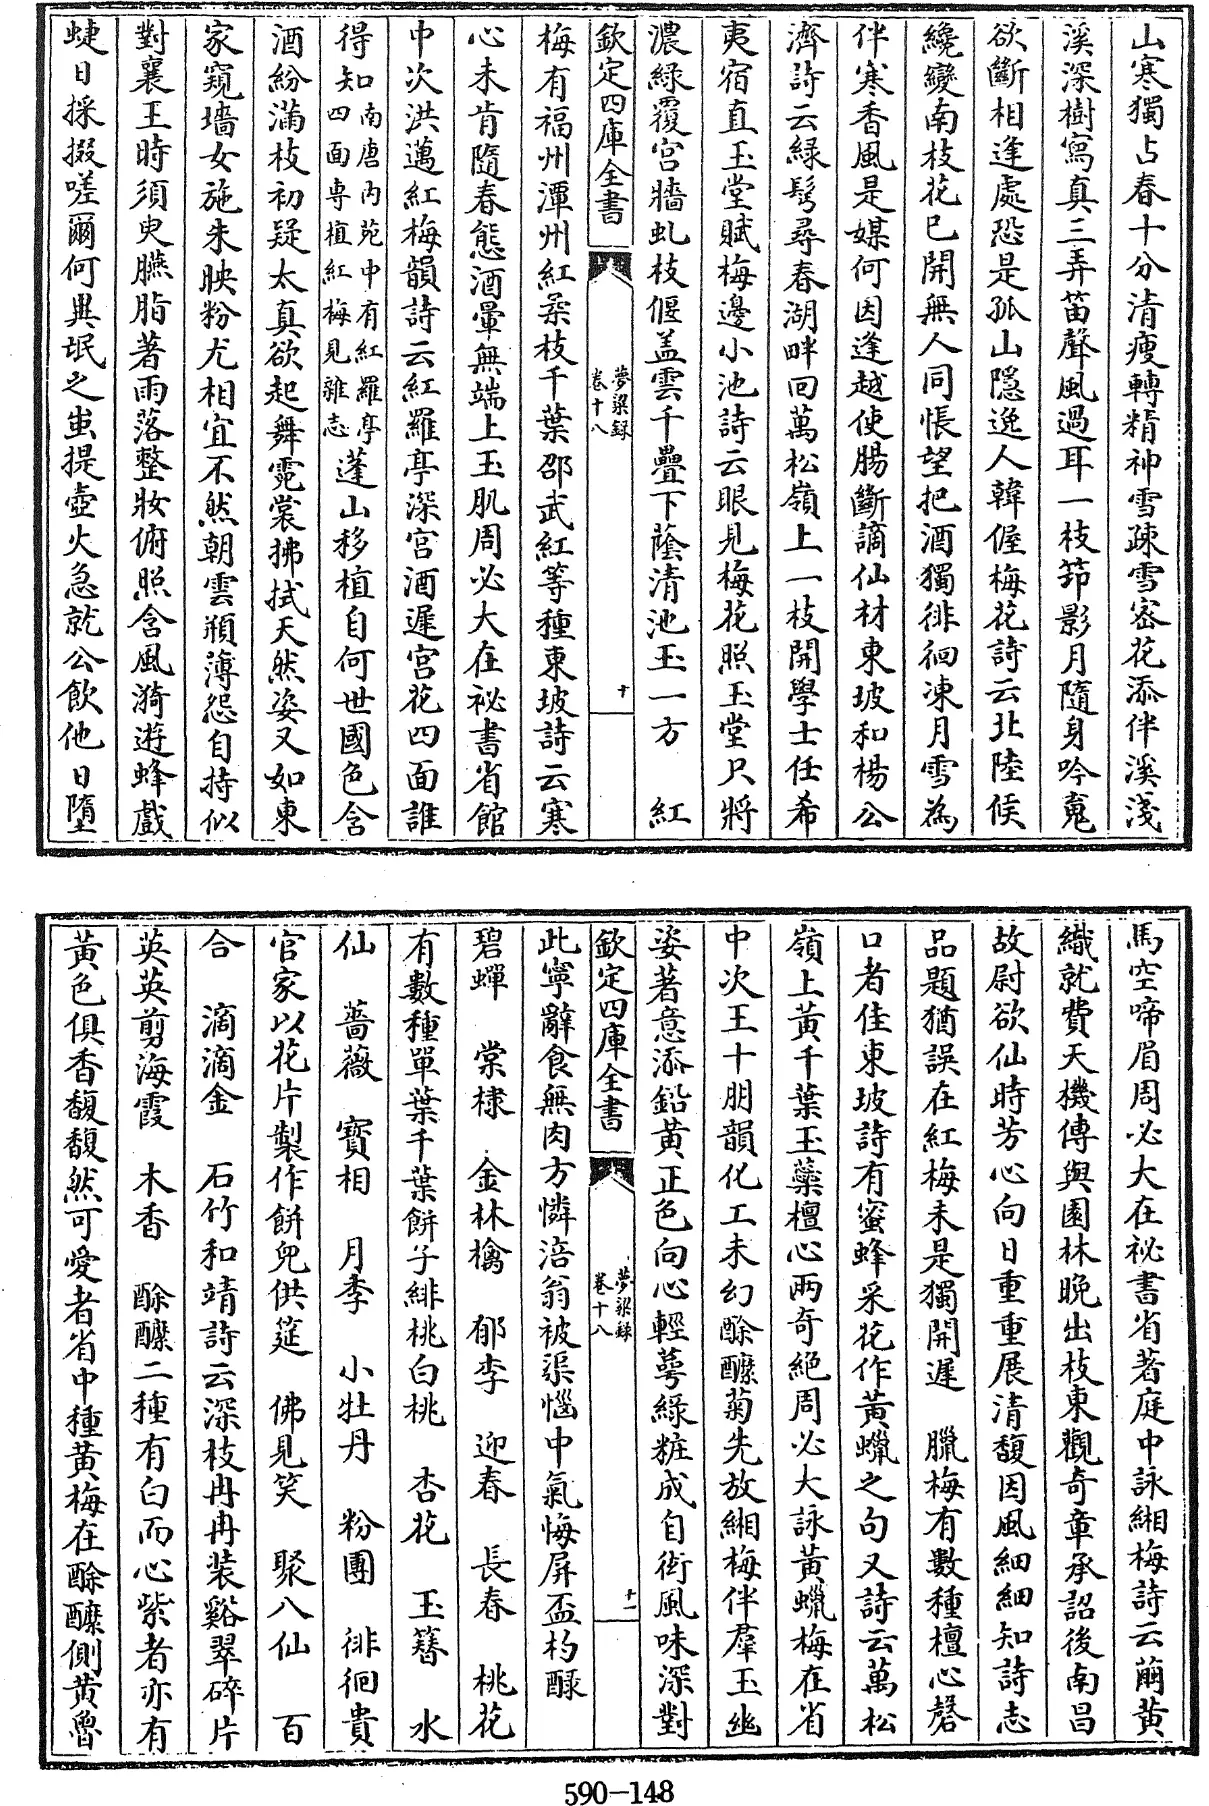 山寒獨占春十分清瘦轉精神雪疎雪密花添伴溪淺
溪深樹寫真三弄笛聲風過耳一枝筇影月隨身吟䰟
欲斷相逢處恐是孤山隱逸人韓偓梅花詩云北陸侯
纔變南枝花已開無人同悵望把酒獨徘徊凍月雪為
伴寒香風是媒何因逢越使腸斷謫仙材東坡和楊公
濟詩云綠髩尋春湖畔回萬松嶺上一枝開學士任希
夷宿直玉堂賦梅邊小池詩云眼見梅花照玉堂只將
濃緑覆宮牆虬枝偃盖雲千疊下蔭清池玉一方　紅
欽定四庫全書
夢粱録
卷十八
十
梅有福州潭州紅柔枝千葉邵武紅等種東坡詩云寒
心未肯隨春態酒暈無端上玉肌周必大在祕書省館
中次洪邁紅梅韻詩云紅羅亭深宮酒遲宮花四面誰
得知南唐内苑中有紅羅亭四面専植紅梅見雜志蓬山移植自何世國色含
酒紛滿枝初疑太真欲起舞霓裳拂拭天然姿又如東
家窺墻女施朱映粉尤相宜不然朝雲頩薄怨自持似
對襄王時須臾臙脂著雨落整妝俯照含風漪遊蜂戲
蜨日採掇嗟爾何異氓之蚩提壺火急就公飲他日墮
馬空啼眉周必大在祕書省著庭中詠緗梅詩云茧黄
織就費天機傳與園林晚出枝東觀奇章承詔後南昌
故尉欲仙時芳心向日重重展清馥因風細細知詩志
品題猶誤在紅梅未是獨開遲　臘梅有數種檀心磬
口者佳東坡詩有蜜蜂采花作黄蠟之句又詩云萬松
嶺上黄千葉玉蘂檀心兩奇絶周必大詠黄蠟梅在省
中次王十朋韻化工未幻酴醿菊先放緗梅伴羣玉幽
姿著意添鉛黄正色向心輕萼緑粧成自衒風味深對
欽定四庫全書
夢粱録
卷十八
十一
此寧辭食無肉方憐涪翁被渠惱中氣悔屏盃杓醁
碧蟬　棠棣　金林檎　郁李　迎春　長春　桃花
有數種單葉千葉餅子緋桃白桃　杏花　玉簪　水
仙　薔薇　寳相　月季　小牡丹　粉團　徘徊貴
官家以花片製作餅兒供筵　佛見笑　聚八仙　百
合　滴滴金　石竹和靖詩云深枝冉冉装谿翠碎片
英英剪海霞　木香　酴醿二種有白而心紫者亦有
黄色俱香馥馥然可愛者省中種黄梅在酴醿側黄魯
590-148